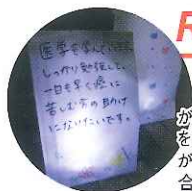 医学を学んでいます。
しっかり勉強して、
一日も早く癒に
苦しむ方の助け
になりたいです。
R
が
を
が
合